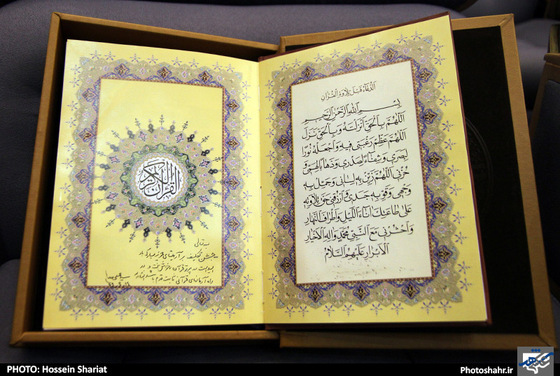 اَلدُّعَاءُ قَبْلَ تِلاوَةِ الْقُرْآنِ
بِسْمِ اللهِ الرَّحْمٰنِ الرَّحِيمِ
اَللّٰهُمَّ بِالْحَقِّ اَنْزَلْتَهُ وَبِالْحَقِّ نَزَلَ
اَللّٰهُمَّ عَظِّمْ رَغْبَتِي فِيهِ وَاجْعَلْهُ نُورًا
لِبَصَرِي وَشِفَاءً لِصَدْرِي وَذَهَابًا لِهَمِّي وَ
حُزْنِي اَللّٰهُمَّ زَيِّنْ بِهِ لِسَانِي وَجَمِّلْ بِهِ
وَجْهِي وَقَوِّ بِهِ جَسَدِي وَارْزُقْنِي حَقَّ تِلاوَتِهِ
عَلىٰ طَاعَتِكَ اٰنَاءَ اللَّيْلِ وَاَطْرَافَ النَّهَارِ
وَاحْشُرْنِي مَعَ النَّبِيِّ مُحَمَّدٍ وَاٰلِهِ الْاَخْيَارِ
الْاَبْرَارِ عَلَيْهِمُ السَّلَامُ
القرآن الكريم
PHOTO: Hossein Shariat
Photoshahr.ir